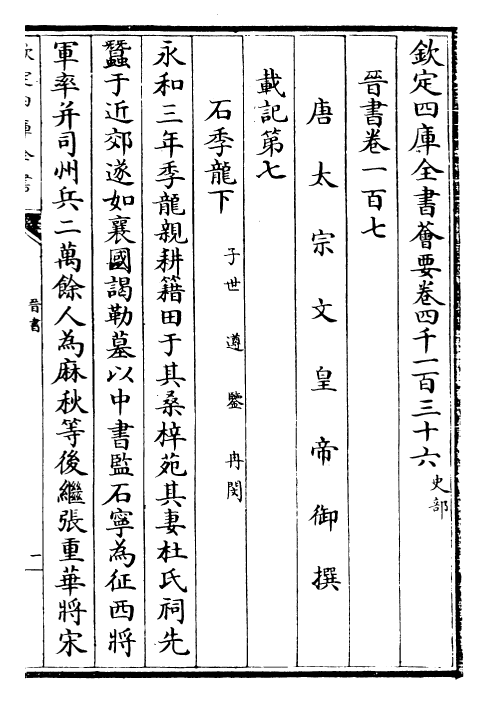 欽定四庫全書薈要卷四千一百三十六 史部
晉書卷一百七
唐太宗文皇帝御撰
載記第七
石季龍下 子世 遵 鑒 冉閔
永和三年季龍親耕籍田于其桑梓苑其妻杜氏祠先
蠶于近郊遂如襄國謁勒墓以中書監石寧為征西將
軍率并司州兵二萬餘人為麻秋等後繼張重華將宋
欽定四庫全書
晉書
一